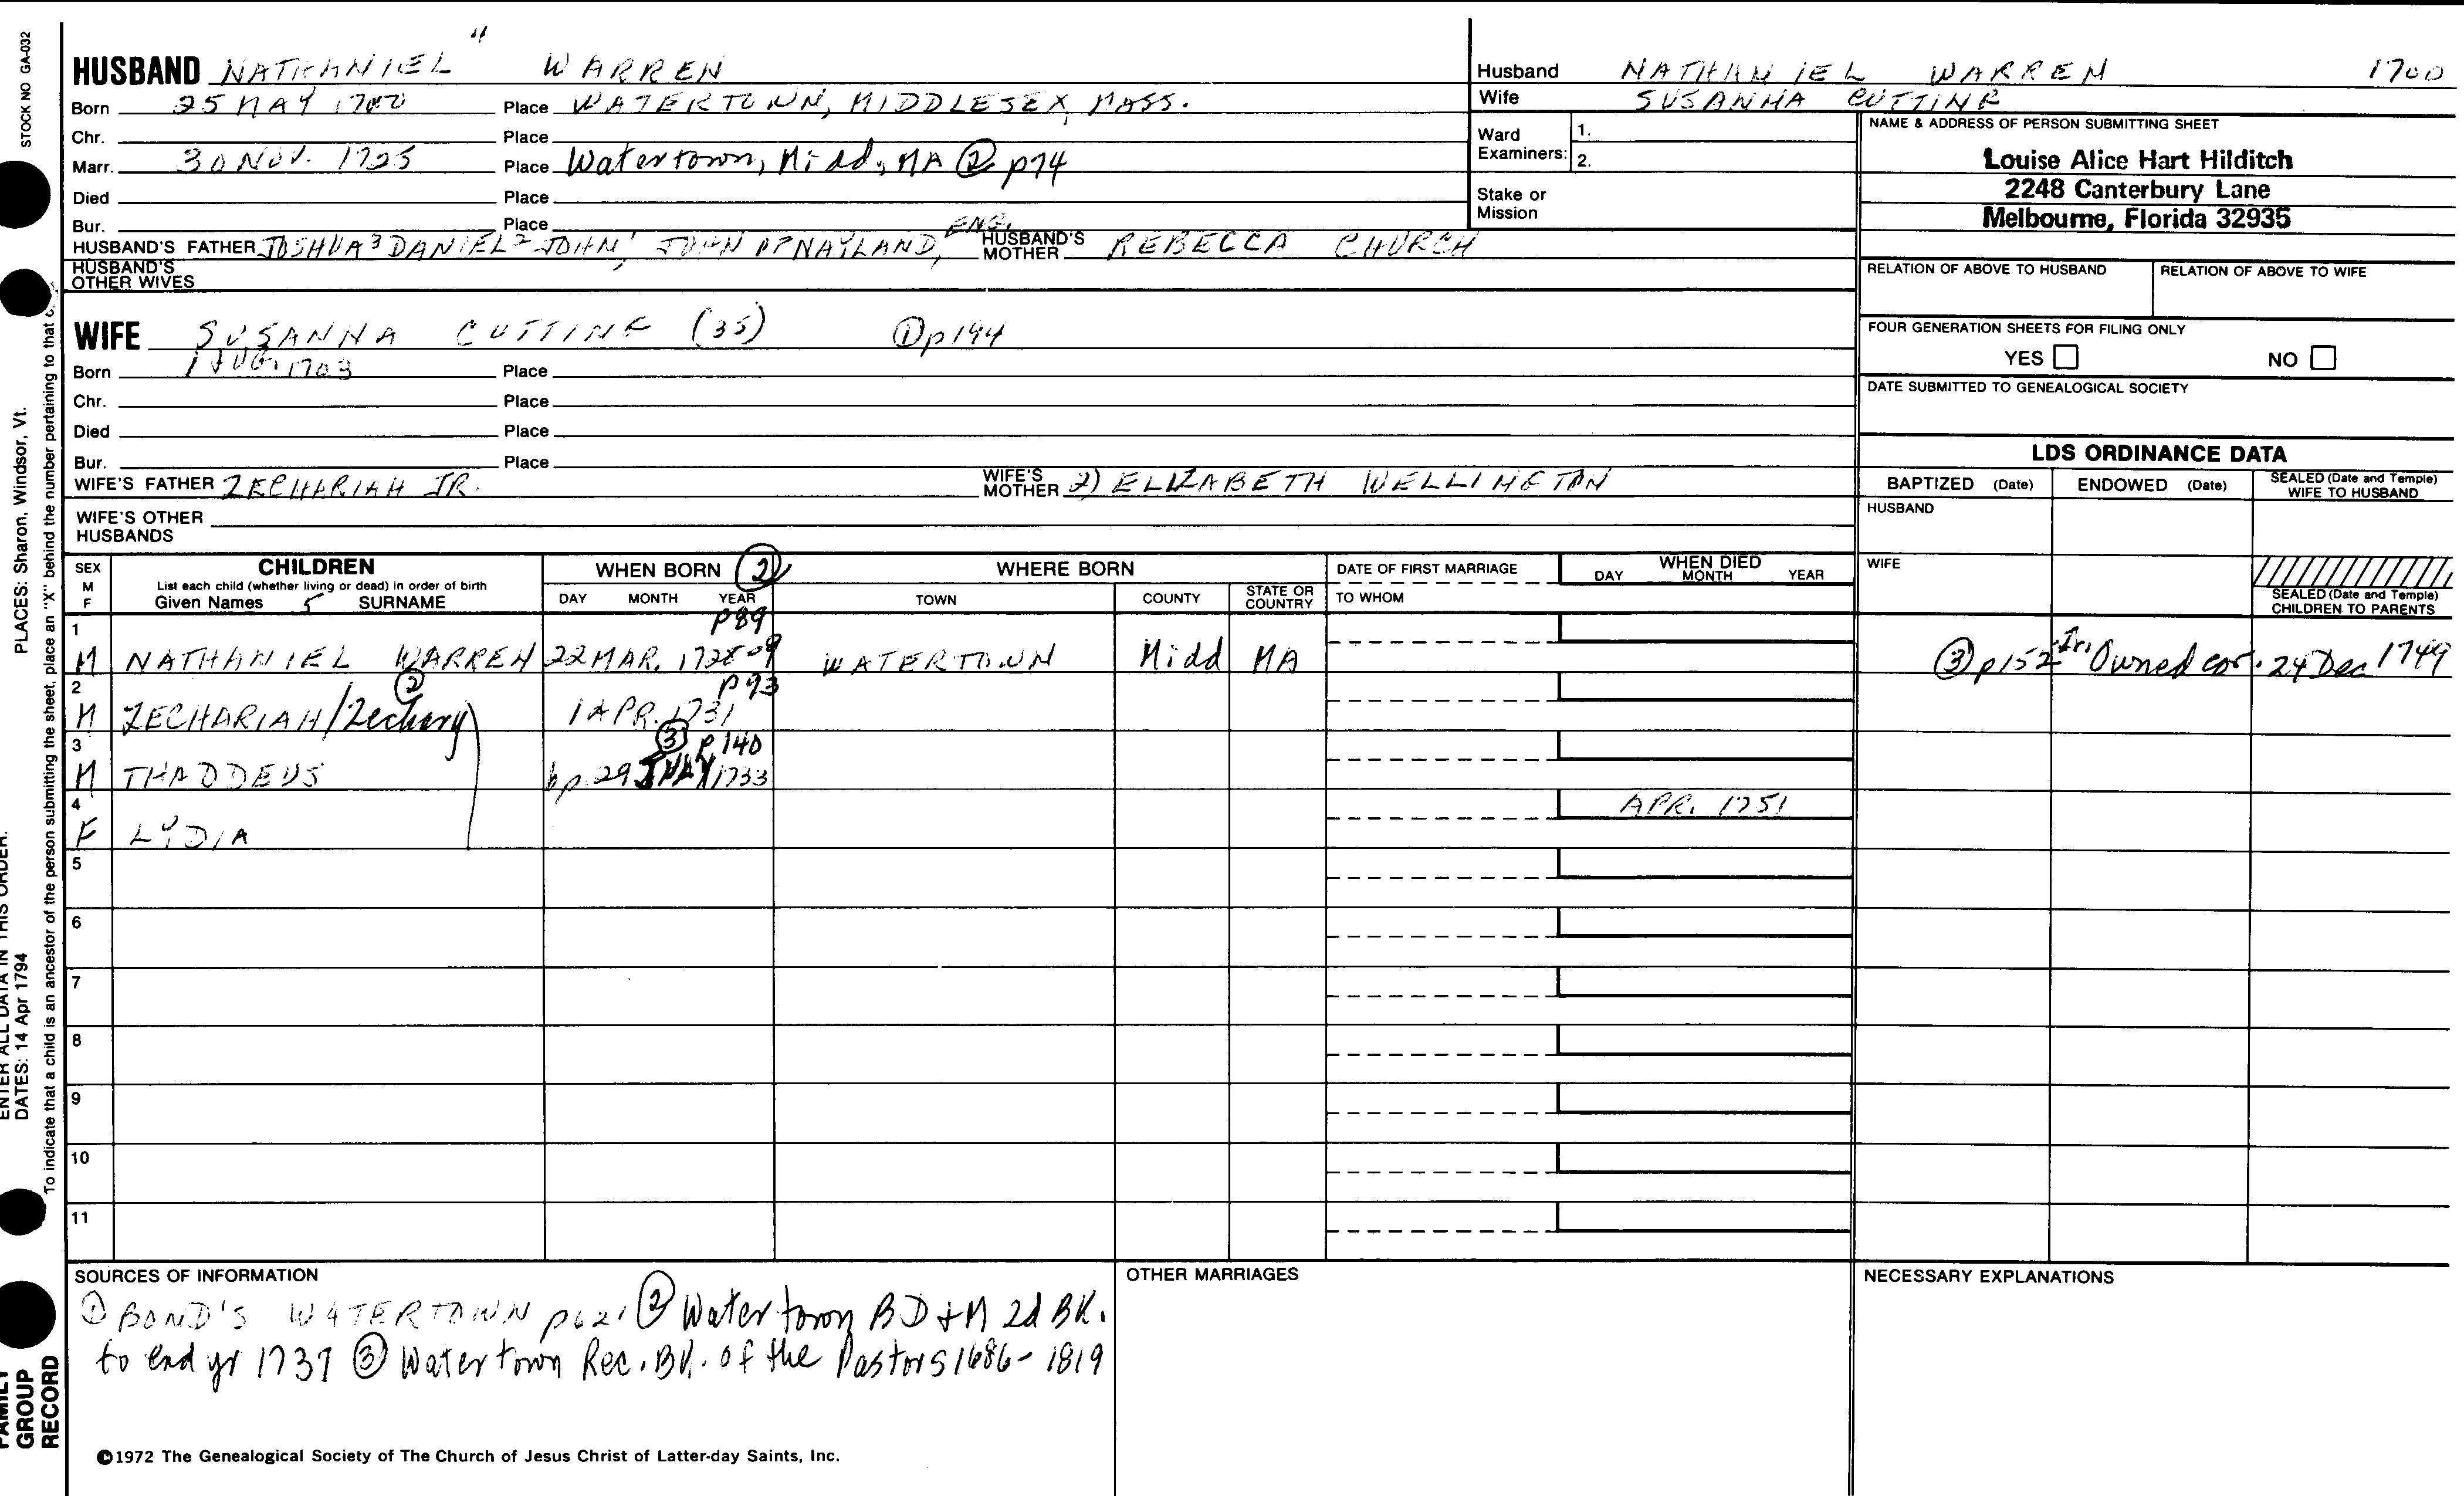 STOCK NO GA-032
HUSBAND NATHANIEL 4 WARREN
Born 25 MAY 1700 Place WATERTOWN, MIDDLESEX, MASS.
Chr. Place
Marr. 30 NOV. 1725 Place Watertown, Midd, MA ② p74
Died Place
Bur. Place
HUSBAND'S FATHER JOSHUA 3 DANIEL 2 JOHN 1, JOHN OF NAYLAND, ENG. HUSBAND'S MOTHER REBECCA CHURCH
HUSBAND'S OTHER WIVES
WIFE SUSANNA CUTTING (35) ① p194
Born 1703 Place
Chr. Place
Died Place
Bur. Place
WIFE'S FATHER ZECHARIAH JR. WIFE'S MOTHER 2) ELIZABETH WELLINGTON
WIFE'S OTHER HUSBANDS
Husband NATHANIEL WARREN 1700
Wife SUSANNA CUTTING
Ward Examiners: 1.
2.
Stake or Mission
NAME & ADDRESS OF PERSON SUBMITTING SHEET
Louise Alice Hart Hilditch
2248 Canterbury Lane
Melbourne, Florida 32935
RELATION OF ABOVE TO HUSBAND RELATION OF ABOVE TO WIFE
FOUR GENERATION SHEETS FOR FILING ONLY
YES NO
DATE SUBMITTED TO GENEALOGICAL SOCIETY
LDS ORDINANCE DATA
BAPTIZED (Date) ENDOWED (Date) SEALED (Date and Temple) WIFE TO HUSBAND
HUSBAND
WIFE
SEALED (Date and Temple) CHILDREN TO PARENTS
SEX M F CHILDREN WHEN BORN ② WHERE BORN DATE OF FIRST MARRIAGE WHEN DIED
List each child (whether living or dead) in order of birth
Given Names 5 SURNAME DAY MONTH YEAR TOWN COUNTY STATE OR COUNTRY TO WHOM DAY MONTH YEAR
1 p89
M NATHANIEL WARREN 22 MAR. 1728-9 WATERTOWN Midd MA ③ p152 Jr. Owned cov. 24 Dec 1749
2 ② p93
M ZECHARIAH/Zechary 1 APR. 1731
3 ③ p.140
M THADDEUS bp. 29 JULY 1733
4 APR. 1751
F LYDIA
5
6
7
8
9
10
11
SOURCES OF INFORMATION
① BOND'S WATERTOWN p621 ② Watertown BD+M 2d BK.
to end yr 1737 ③ Watertown Rec. BK. of the Pastors 1686-1819
OTHER MARRIAGES
NECESSARY EXPLANATIONS
©1972 The Genealogical Society of The Church of Jesus Christ of Latter-day Saints, Inc.
PLACES: Sharon, Windsor, Vt.
ENTER ALL DATA IN THIS ORDER:
DATES: 14 Apr 1794
To indicate that a child is an ancestor of the person submitting the sheet, place an "X" behind the number pertaining to that
FAMILY
GROUP
RECORD